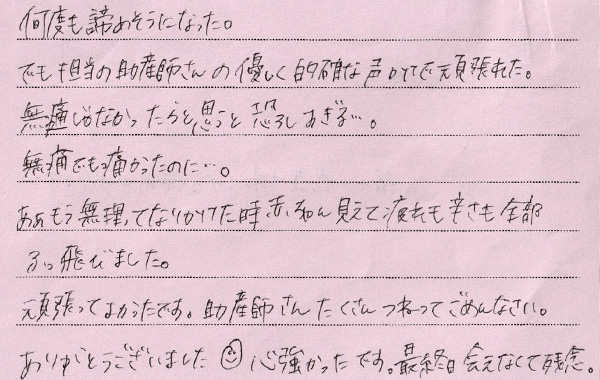 何度も諦めそうになった。
でも担当の助産師さんの優しく的確な声かけで頑張れた。
無痛じゃなかったらと思うと恐ろしすぎる…。
無痛でも痛かったのに…。
ああもう無理ってなりかけた時赤ちゃん見えて疲れも辛さも全部
ふっ飛びました。
頑張ってよかったです。助産師さんたくさんつねってごめんなさい。
ありがとうございました 心強かったです。最終日会えなくて残念。